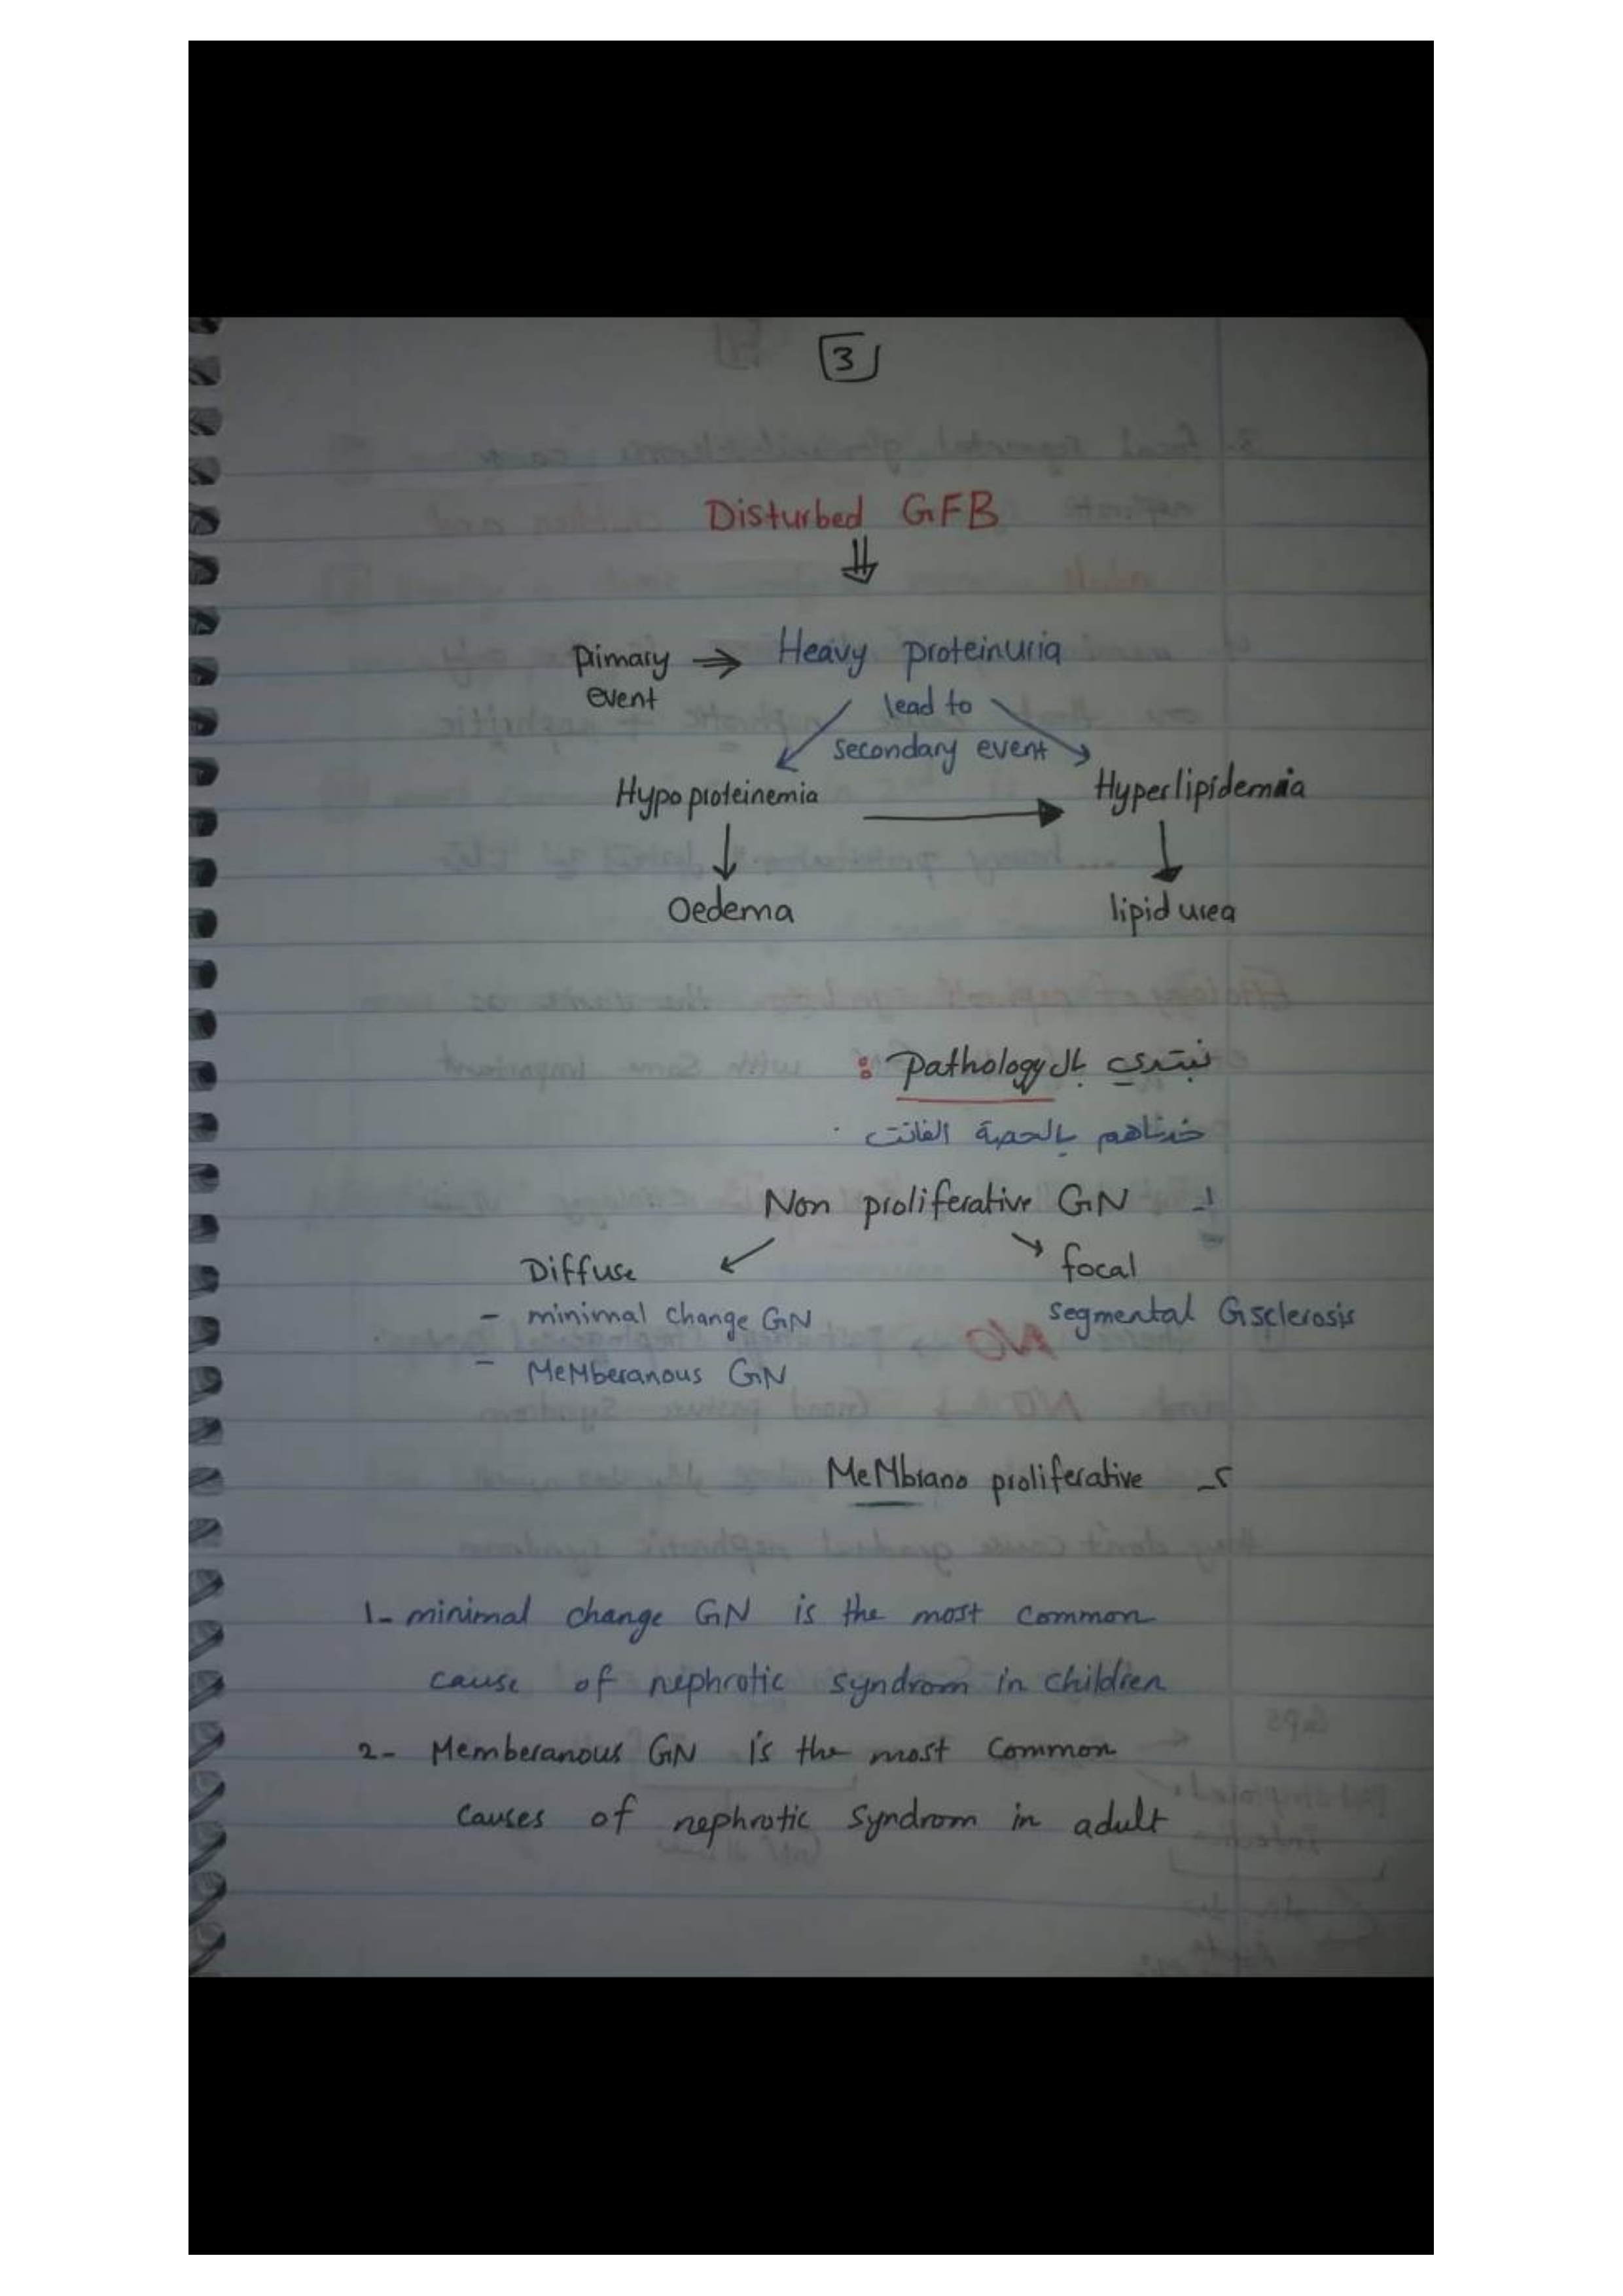 3
Disturbed GFB
primary event ⇒ Heavy proteinuria
lead to
secondary event
Hypoproteinemia → Hyperlipidemia
Oedema lipid urea
نبتدي بال pathology :
خدناهم بالحصة الفاتت .
١- Non proliferative GN
Diffuse focal
- minimal change GN segmental Gsclerosis
- MeMberanous GN
٢- MeMbrano proliferative
1- minimal change GN is the most common
cause of nephrotic syndrom in children
2- Memberanous GN is the most Common
causes of nephrotic syndrom in adult